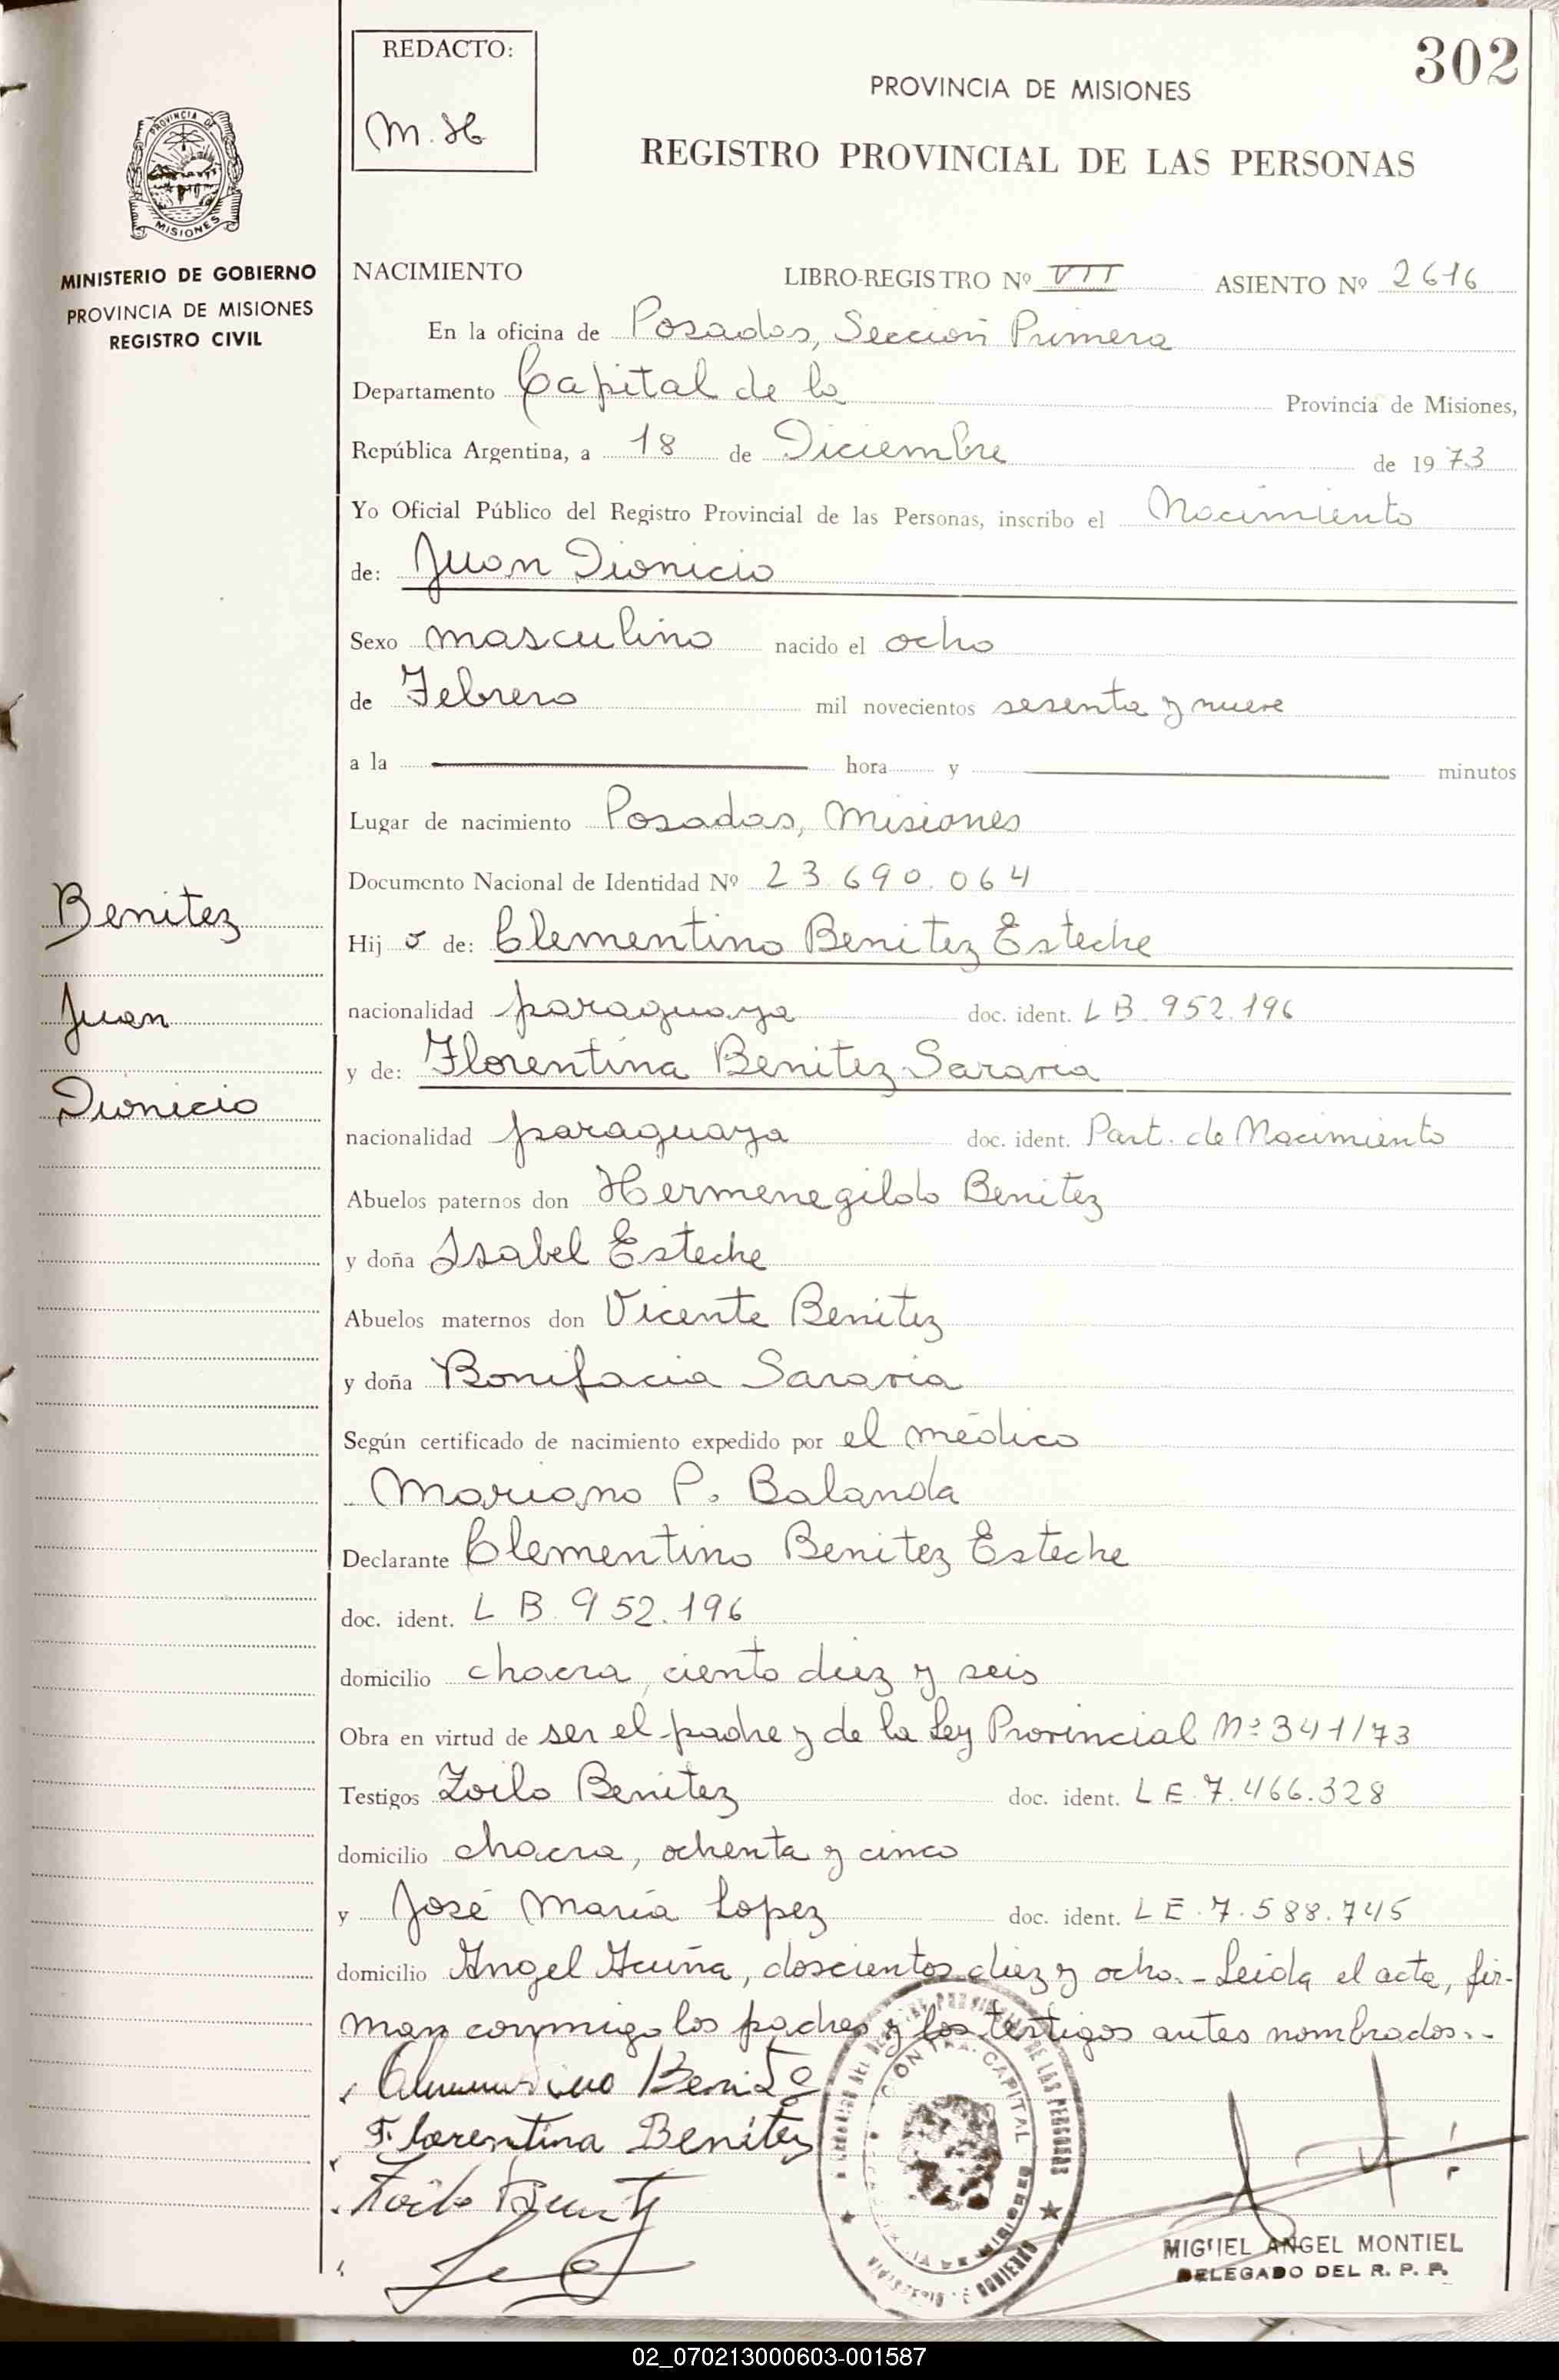 302
REDACTO:
M. H
PROVINCIA DE MISIONES
REGISTRO PROVINCIAL DE LAS PERSONAS
PROVINCIA DE
MISIONES
MINISTERIO DE GOBIERNO
PROVINCIA DE MISIONES
REGISTRO CIVIL
NACIMIENTO LIBRO-REGISTRO Nº VII ASIENTO Nº 2616
En la oficina de Posadas, Sección Primera
Departamento Capital de la Provincia de Misiones,
República Argentina, a 18 de Diciembre de 1973
Yo Oficial Público del Registro Provincial de las Personas, inscribo el Nacimiento
de: Juan Dionicio
Sexo masculino nacido el ocho
de Febrero mil novecientos sesenta y nueve
a la hora y minutos
Lugar de nacimiento Posadas, Misiones
Documento Nacional de Identidad Nº 23.690.064
Benitez
Juan
Dionicio
Hijo de: Clementino Benitez Esteche
nacionalidad paraguaya doc. ident. L B. 952.196
y de: Florentina Benitez Sararia
nacionalidad paraguaya doc. ident. Part. de Nacimiento
Abuelos paternos don Hermenegildo Benitez
y doña Isabel Esteche
Abuelos maternos don Vicente Benitez
y doña Bonifacia Sararia
Según certificado de nacimiento expedido por el médico
Mariano P. Balanda
Declarante Clementino Benitez Esteche
doc. ident. L B. 952.196
domicilio chacra, ciento diez y seis
Obra en virtud de ser el padre y de la Ley Provincial Nº 341/73
Testigos Zoilo Benitez doc. ident. L E. 7.466.328
domicilio chacra, ochenta y cinco
y José María Lopez doc. ident. L E. 7.588.745
domicilio Angel Acuña, doscientos diez y ocho.- Leida el acta, fir-
man conmigo los padres y los testigos antes nombrados.-
Clementino Benitez
Florentina Benitez
Zoilo Benitez
CAPITAL
MIGUEL ANGEL MONTIEL
DELEGADO DEL R. P. P.
02_070213000603-001587